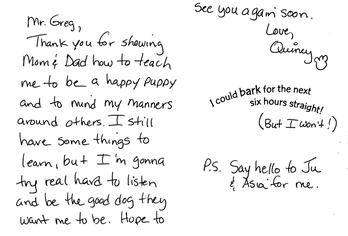 Mr. Greg,
Thank you for showing
Mom & Dad how to teach
me to be a happy puppy
and to mind my manners
around others. I still
have some things to
learn, but I'm gonna
try real hard to listen
and be the good dog they
want me to be. Hope to
see you again soon.
Love,
Quincy
I could bark for the next
six hours straight!
(But I won't!)
P.S. Say hello to Ju
& Asia for me.